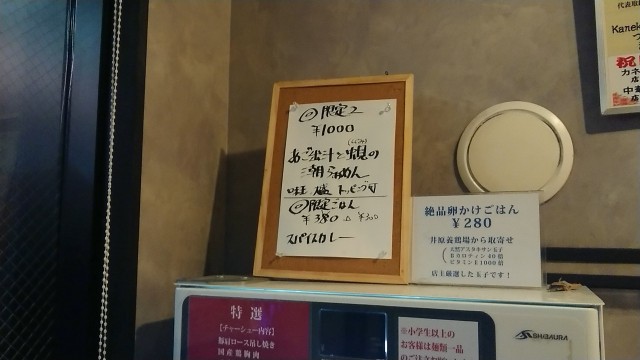 限定2
¥1000
潮らぁめん
味玉、大盛 トッピング可
限定ごはん
¥380 ¥300
スパイスカレー
絶品卵かけごはん
¥280
井原養鶏場から取寄せ
天然アスタキサンチン玉子
βカロテン40倍
ビタミンE1000倍
店主厳選した玉子です!
特選
【チャーシュー内容】
豚肩ロース吊し焼き
国産鶏胸肉
※小学生以上の
お客様は麺類一品
SHIBAURA
代表取
Kanek
祝
カネ
店
中華
店